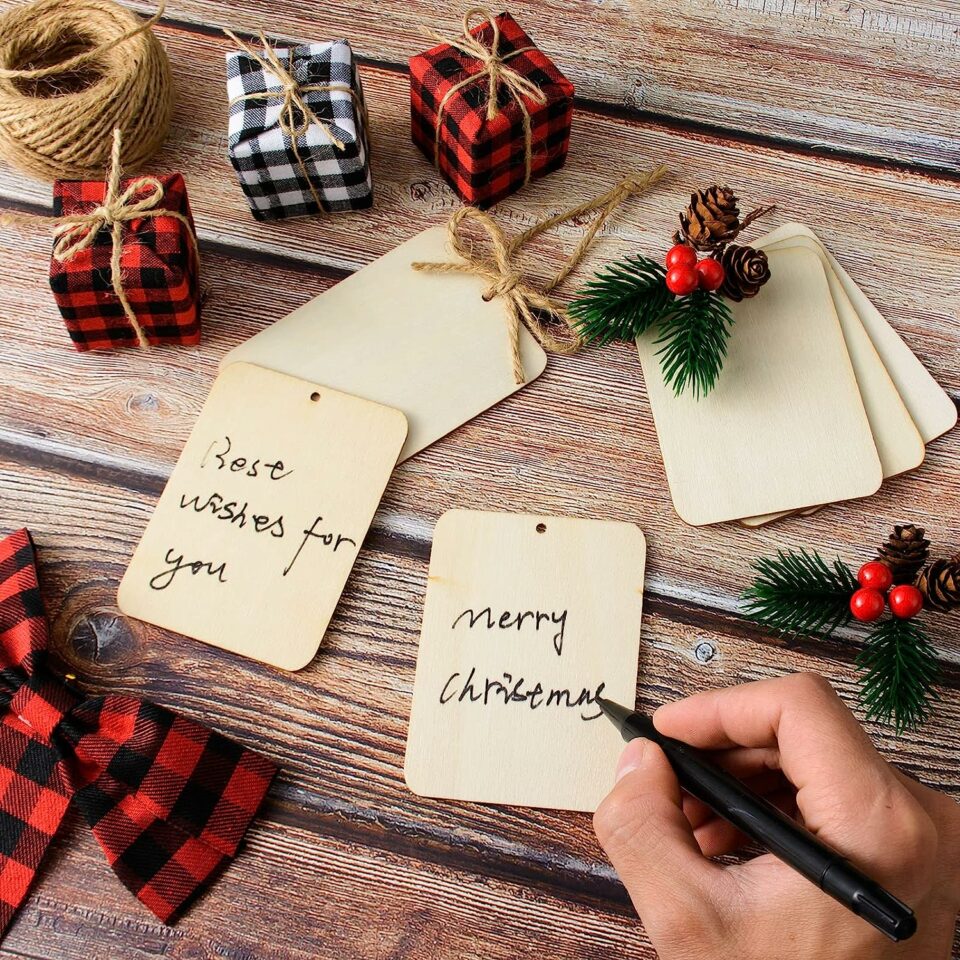 Best
wishes for
you
Merry
Christmas